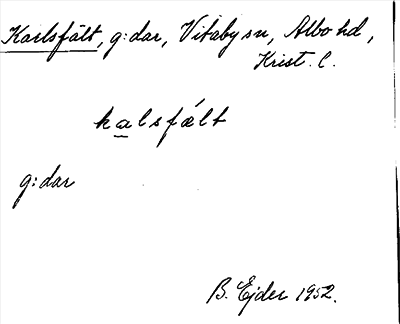 Karlsfält, g:dar, Vitaby sn, Albo hd,
Krist. l.
kalsfǽlt
g:dar
B. Ejder 1952.